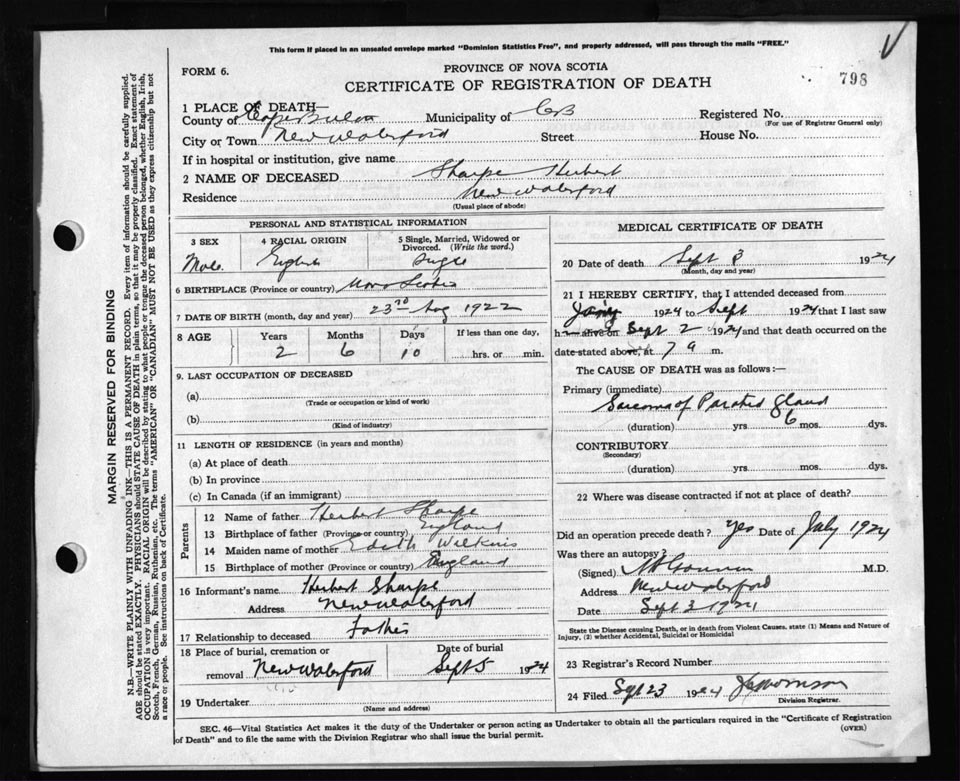 This form if placed in an unsealed envelope marked "Dominion Statistics Free", and properly addressed, will pass through the mails "FREE."
FORM 6.
PROVINCE OF NOVA SCOTIA
CERTIFICATE OF REGISTRATION OF DEATH
798
1 PLACE OF DEATH—
County of Cape Breton Municipality of CB Registered No.
(For use of Registrar General only)
City or Town New Waterford Street House No.
If in hospital or institution, give name
2 NAME OF DECEASED Sharpe Herbert
Residence New Waterford
(Usual place of abode)
PERSONAL AND STATISTICAL INFORMATION
3 SEX 4 RACIAL ORIGIN 5 Single, Married, Widowed or Divorced. (Write the word.)
Male English Single
6 BIRTHPLACE (Province or country) Nova Scotia
7 DATE OF BIRTH (month, day and year) 23rd Aug 1922
8 AGE Years Months Days If less than one day,
2 6 10 hrs. or min.
9. LAST OCCUPATION OF DECEASED
(a)
(Trade or occupation or kind of work)
(b)
(Kind of industry)
11 LENGTH OF RESIDENCE (in years and months)
(a) At place of death
(b) In province
(c) In Canada (if an immigrant)
Parents
12 Name of father Herbert Sharpe
13 Birthplace of father (Province or country) England
14 Maiden name of mother Edith
15 Birthplace of mother (Province or country) England
16 Informant's name Herbert Sharpe
Address New Waterford
17 Relationship to deceased Father
18 Place of burial, cremation or removal New Waterford Date of burial Sept 5 1924
19 Undertaker
(Name and address)
MEDICAL CERTIFICATE OF DEATH
20 Date of death Sept 3 1924
(Month, day and year)
21 I HEREBY CERTIFY, that I attended deceased from
1924 to Sept 1924 that I last saw
h alive on Sept 2 1924 and that death occurred on
date stated above, at 7 a m.
The CAUSE OF DEATH was as follows:—
Primary (immediate)
Sarcoma of Parotid Gland
(duration) yrs 6 mos. dys.
CONTRIBUTORY
(Secondary)
(duration) yrs mos. dys.
22 Where was disease contracted if not at place of death?
Did an operation precede death? Yes Date of July 1924
Was there an autopsy?
(Signed) M.D.
Address New Waterford
Date Sept 3 1924
State the Disease causing Death, or in death from Violent Causes, state (1) Means and Nature of
Injury, (2) whether Accidental, Suicidal or Homicidal
23 Registrar's Record Number
24 Filed Sept 23 1924
Division Registrar.
SEC. 46—Vital Statistics Act makes it the duty of the Undertaker or person acting as Undertaker to obtain all the particulars required in the "Certificate of Registration
of Death" and to file the same with the Division Registrar who shall issue the burial permit.
(OVER)
MARGIN RESERVED FOR BINDING
N.B.—WRITE PLAINLY WITH UNFADING INK—THIS IS A PERMANENT RECORD. Every item of information should be carefully supplied.
AGE should be stated EXACTLY. PHYSICIANS should STATE CAUSE OF DEATH in plain terms, so that it may be properly classified. Exact statement of
OCCUPATION is very important. RACIAL ORIGIN will be described by stating to what people or tongue the deceased person belonged, whether English, Irish,
Scotch, French, German, Russian, Ruthenian, etc. The terms "AMERICAN" or "CANADIAN" MUST NOT BE USED as they express citizenship but not
a race or people. See instructions on back of Certificate.